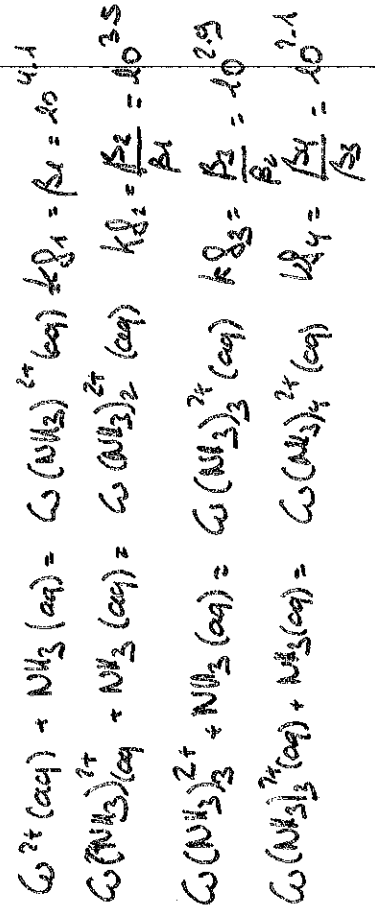 Cu²⁺(aq) + NH₃(aq) = Cu(NH₃)²⁺(aq) kf₁ = β₁ = 10⁴·¹
Cu(NH₃)²⁺(aq + NH₃(aq) = Cu(NH₃)₂²⁺(aq) kf₂ = β₂/β₁ = 10³·⁵
Cu(NH₃)₃²⁺ + NH₃(aq) = Cu(NH₃)₃²⁺(aq) kf₃ = β₃/β₂ = 10²·⁹
Cu(NH₃)₃²⁺(aq) + NH₃(aq) = Cu(NH₃)₄²⁺(aq) kf₄ = β₄/β₃ = 10²·¹